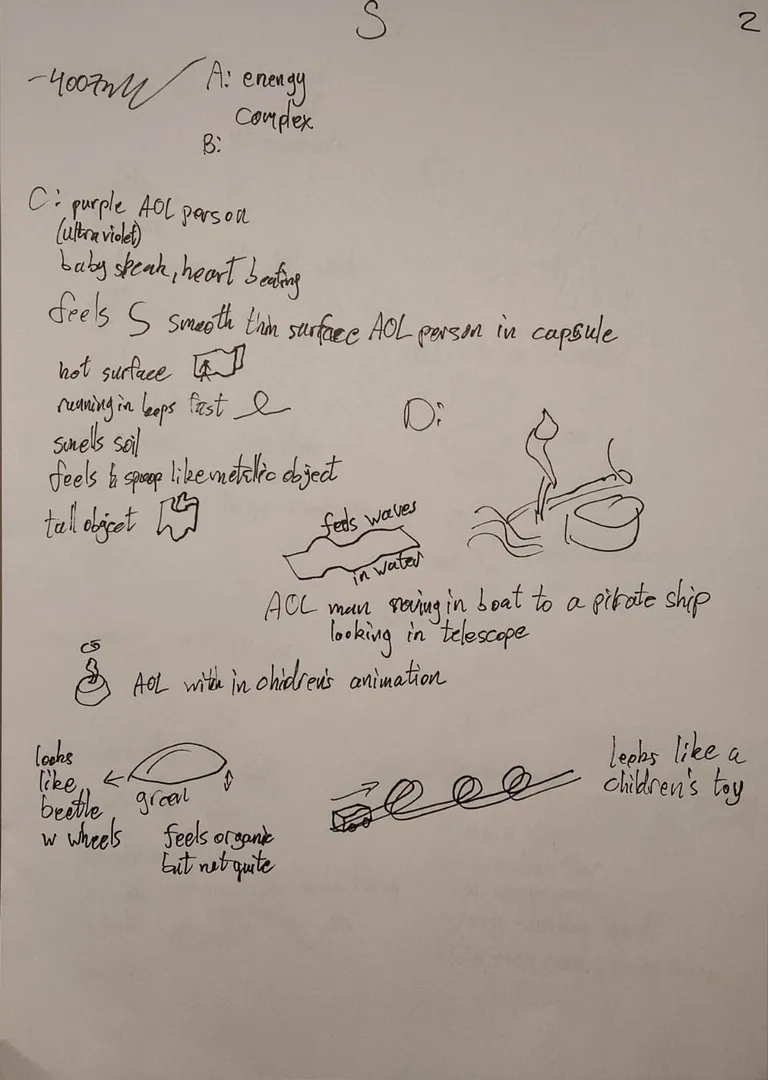 S
2
A: energy
complex
B:
C: purple AOL person
(ultraviolet)
baby speak, heart beating
feels S smooth thin surface AOL person in capsule
hot surface
running in loops fast
smells soil
feels like metallic object
tall object
D:
feels waves
in water
AOL man in boat to a pirate ship
looking in telescope
AOL with in chidren's animation
looks
like
beetle
w wheels
green
feels organic
but not quite
looks like a
children's toy